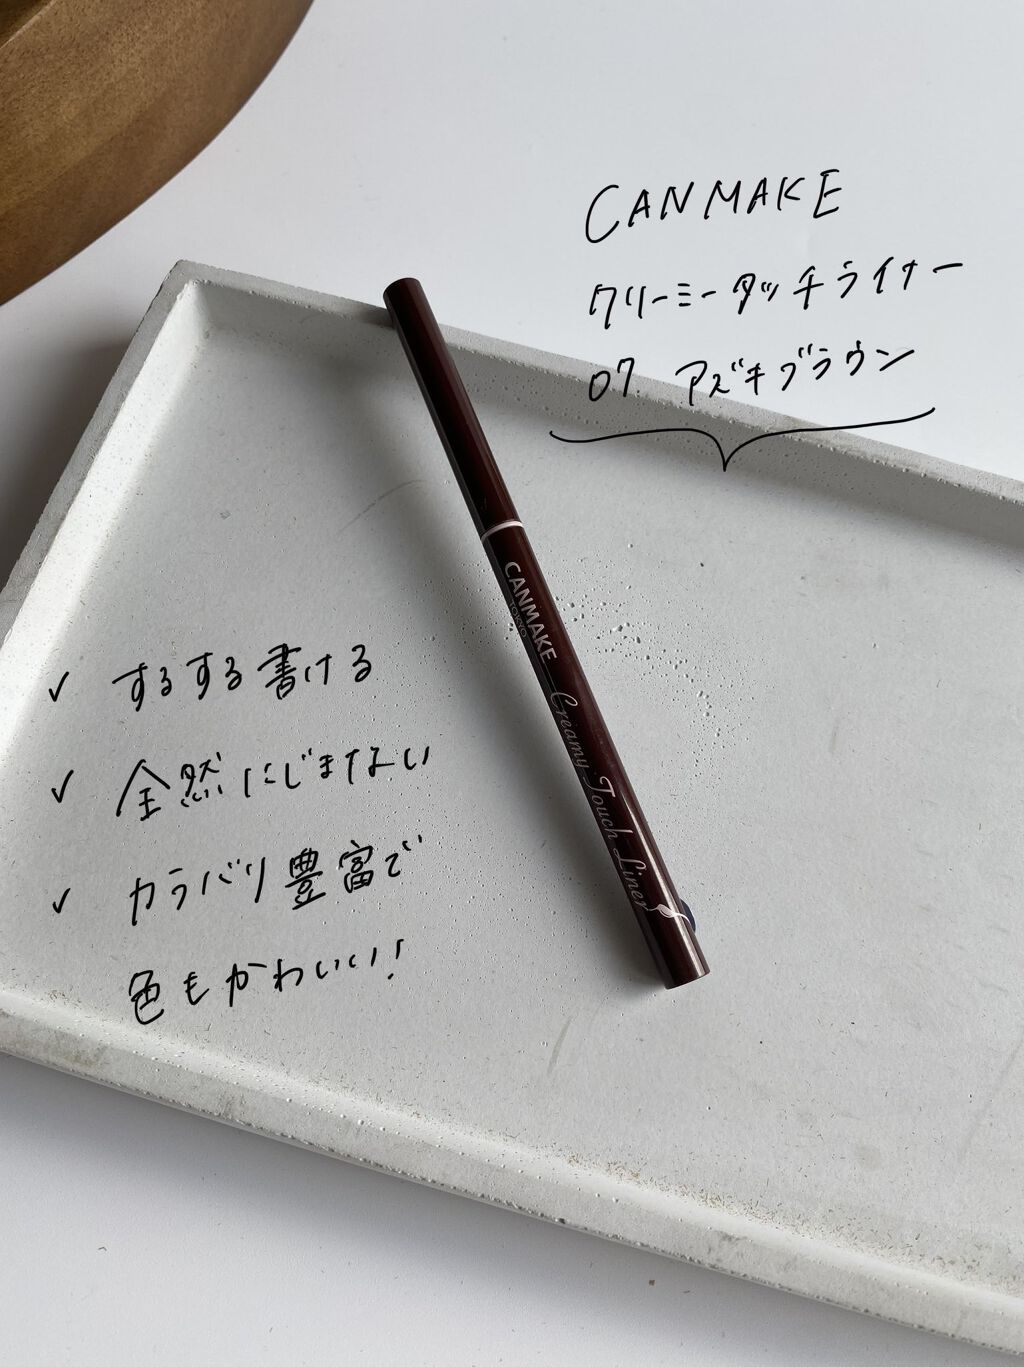 CANMAKE
クリーミータッチライナー
07. アズキブラウン
CANMAKE
TOKYO
Creamy Touch Liner
✓ するする書ける
✓ 全然にじまない
✓ カラバリ豊富で
色もかわいい!